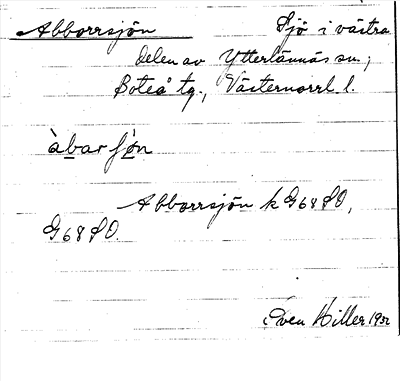 Abborrsjön Sjö i västra
delen av Ytterlännäs sn,
Boteå tg., Västernorrl. l.
àbarʃø̀n
Abborrsjön k G68SO,
G68SO.
Sven Hiller 1932